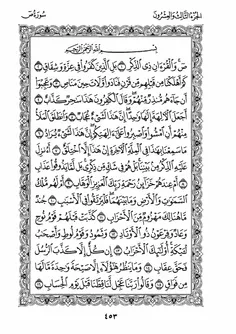 الجزء الثالث والعشرون سورة ص
بِسْمِ اللَّهِ الرَّحْمَٰنِ الرَّحِيمِ
صٓ وَالْقُرْآنِ ذِي الذِّكْرِ ١ بَلِ الَّذِينَ كَفَرُوا فِي عِزَّةٍ وَشِقَاقٍ ٢
كَمْ أَهْلَكْنَا مِن قَبْلِهِم مِّن قَرْنٍ فَنَادَوا وَّلَاتَ حِينَ مَنَاصٍ ٣ وَعَجِبُوا
أَن جَاءَهُم مُّنذِرٌ مِّنْهُمْ وَقَالَ الْكَافِرُونَ هَٰذَا سَاحِرٌ كَذَّابٌ ٤
أَجَعَلَ الْآلِهَةَ إِلَٰهًا وَاحِدًا إِنَّ هَٰذَا لَشَيْءٌ عُجَابٌ ٥ وَانطَلَقَ الْمَلَأُ
مِنْهُمْ أَنِ امْشُوا وَاصْبِرُوا عَلَىٰ آلِهَتِكُمْ إِنَّ هَٰذَا لَشَيْءٌ يُرَادُ ٦
مَا سَمِعْنَا بِهَٰذَا فِي الْمِلَّةِ الْآخِرَةِ إِنْ هَٰذَا إِلَّا اخْتِلَاقٌ ٧ أَأُنزِلَ
عَلَيْهِ الذِّكْرُ مِن بَيْنِنَا بَلْ هُمْ فِي شَكٍّ مِّن ذِكْرِي بَل لَّمَّا يَذُوقُوا عَذَابِ
٨ أَمْ عِندَهُمْ خَزَائِنُ رَحْمَةِ رَبِّكَ الْعَزِيزِ الْوَهَّابِ ٩ أَمْ لَهُم مُّلْكُ
السَّمَاوَاتِ وَالْأَرْضِ وَمَا بَيْنَهُمَا فَلْيَرْتَقُوا فِي الْأَسْبَابِ ١٠
جُندٌ مَّا هُنَالِكَ مَهْزُومٌ مِّنَ الْأَحْزَابِ ١١ كَذَّبَتْ قَبْلَهُمْ قَوْمُ نُوحٍ
وَعَادٌ وَفِرْعَوْنُ ذُو الْأَوْتَادِ ١٢ وَثَمُودُ وَقَوْمُ لُوطٍ وَأَصْحَابُ
لْأَيْكَةِ أُولَٰئِكَ الْأَحْزَابُ ١٣ إِن كُلٌّ إِلَّا كَذَّبَ الرُّسُلَ
فَحَقَّ عِقَابِ ١٤ وَمَا يَنظُرُ هَٰؤُلَاءِ إِلَّا صَيْحَةً وَاحِدَةً مَّا لَهَا
مِن فَوَاقٍ ١٥ وَقَالُوا رَبَّنَا عَجِّل لَّنَا قِطَّنَا قَبْلَ يَوْمِ الْحِسَابِ ١٦
٤٥٣